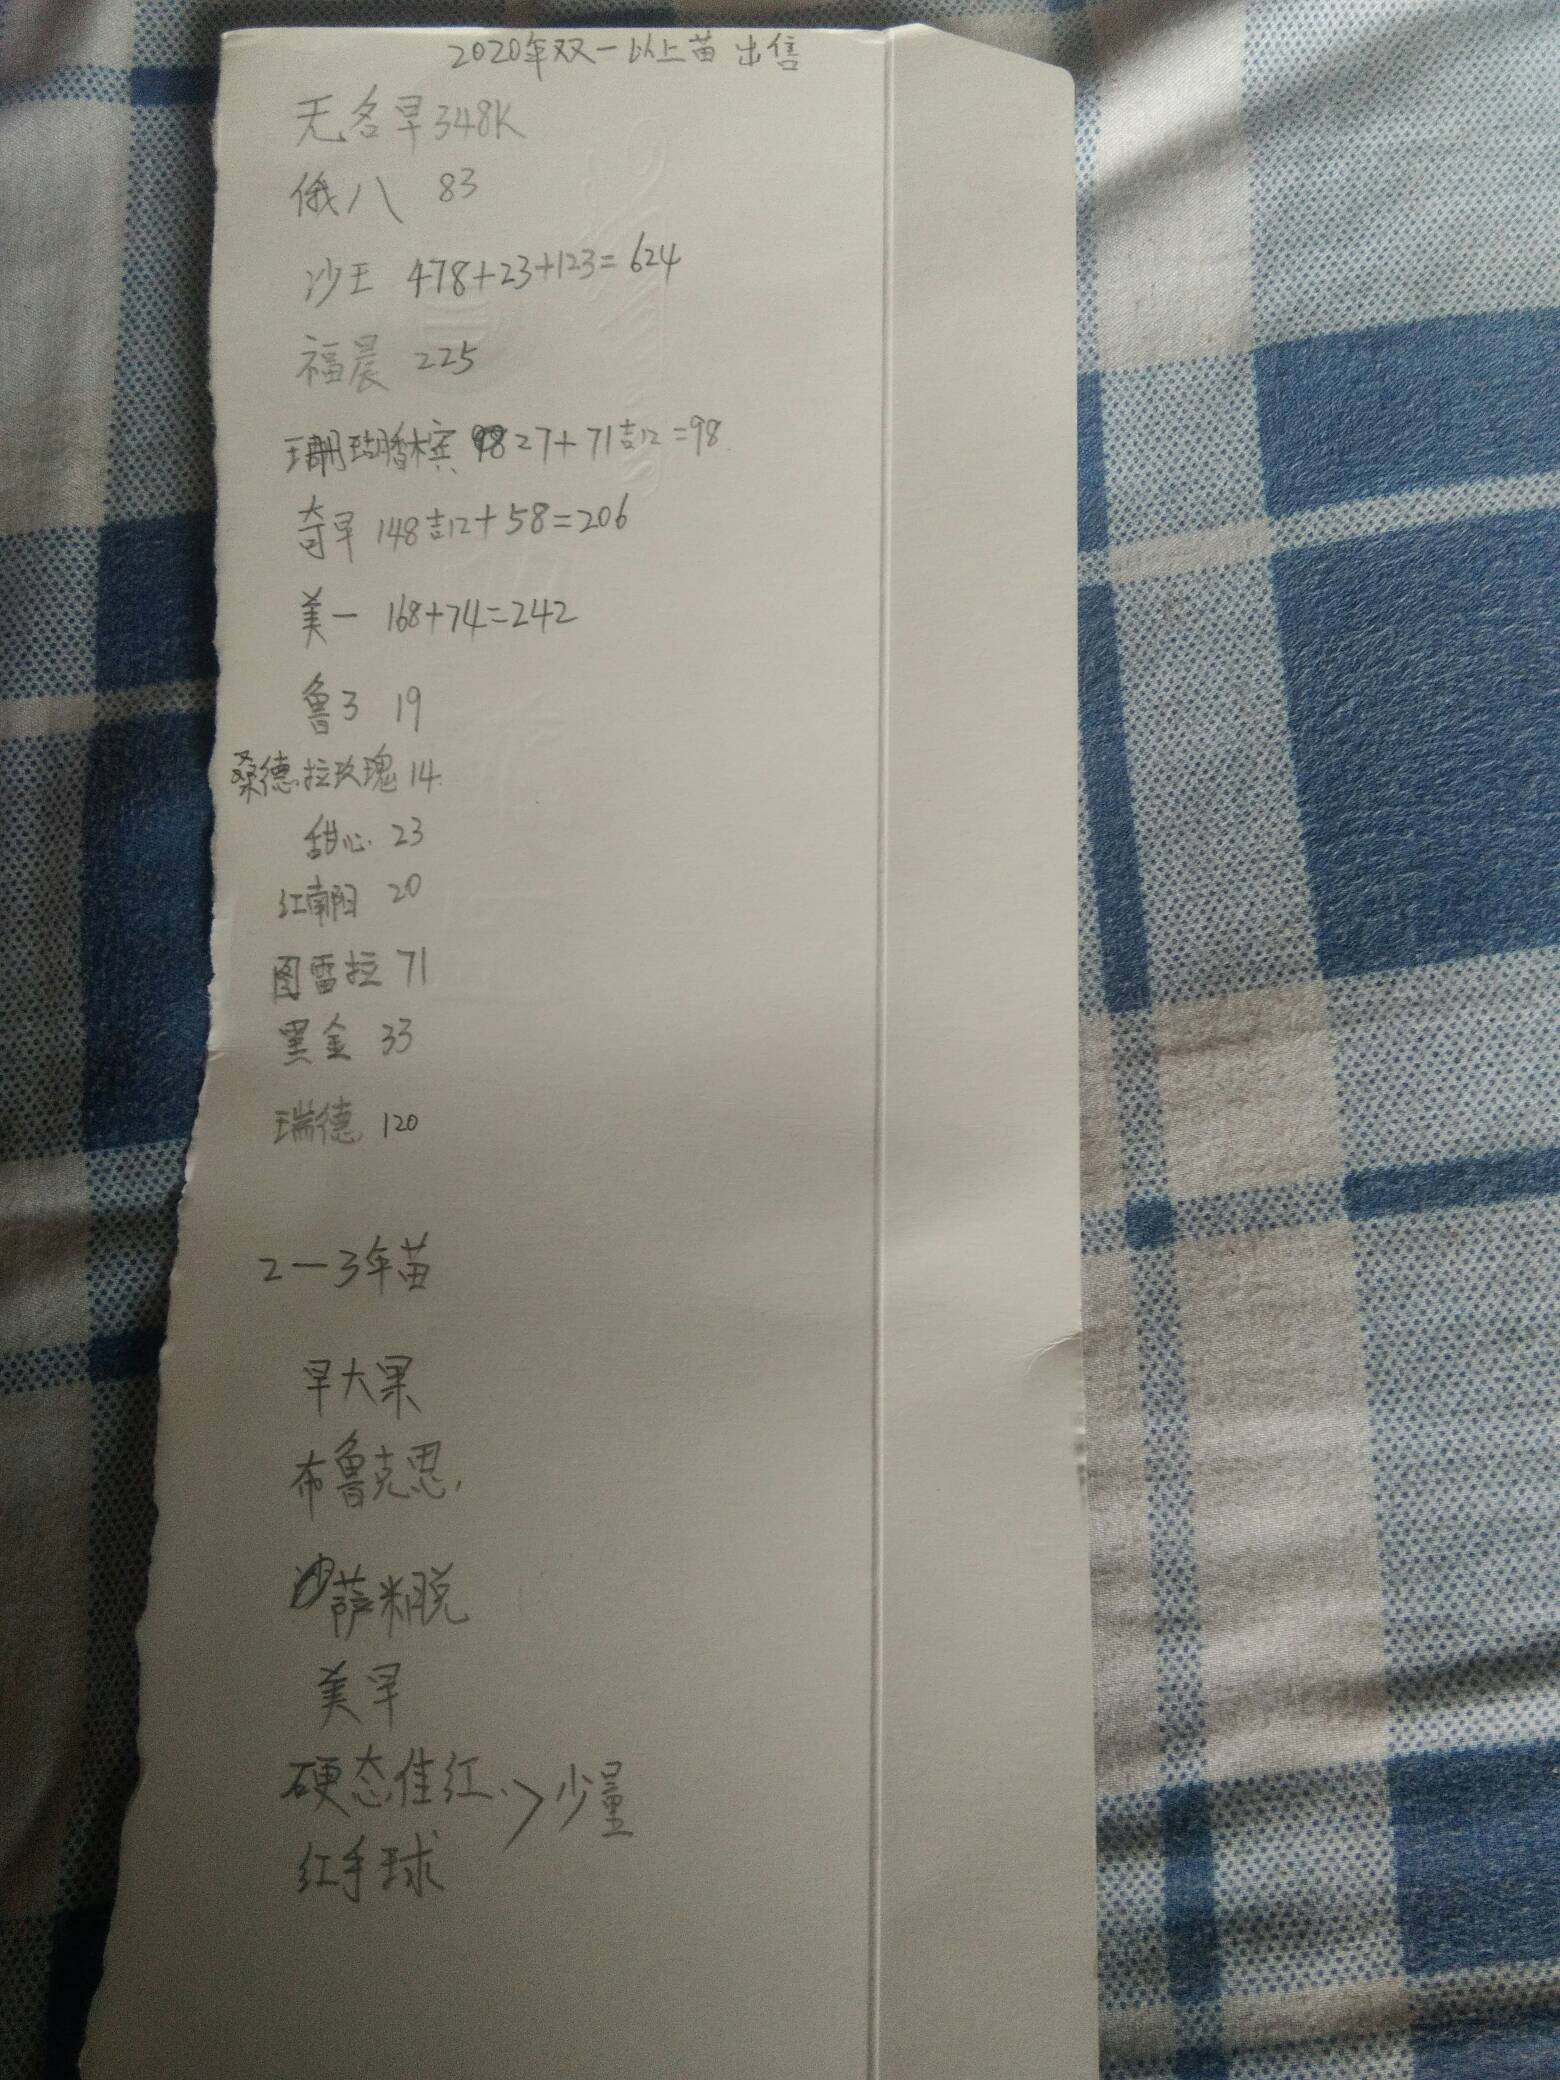 2020年双一以上苗 出售
无名早348K
俄八 83
沙王 478+23+123=624
福晨 225
珊瑚香槟 27+71吉12=98
奇早 148吉12+58=206
美一 168+74=242
鲁3 19
桑德拉玫瑰 14
甜心 23
红南阳 20
图雷拉 71
黑金 33
瑞德 120
2一3年苗
早大果
布鲁克思
萨米脱
美早
硬态佳红 > 少量
红手球